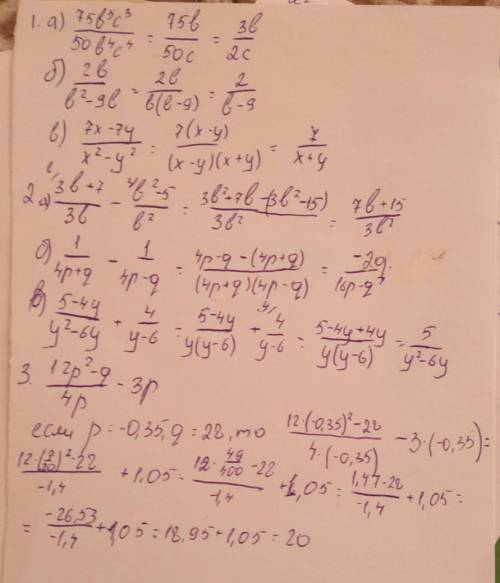 1. а) 75b⁵c³/50b⁴c⁴ = 75b/50c = 3b/2c
б) 2b/b²-9b = 2b/b(b-9) = 2/b-9
в) 7x-7y/x²-y² = 7(x-y)/(x-y)(x+y) = 7/x+y
2. а) 3b+7/3b - b²-5/b² = 3b²+7b-(3b²-15)/3b² = 7b+15/3b²
б) 1/4p+q - 1/4p-q = 4p-q-(4p+q)/(4p+q)(4p-q) = -2q/16p-q²
в) 5-4y/y²-6y + 4/y-6 = 5-4y/y(y-6) + 4/y-6 = 5-4y+4y/y(y-6) = 5/y²-6y
3. 12p²-q/4p - 3p
если p=-0,35, q=28, то 12·(-0,35)²-28/4·(-0,35) - 3·(-0,35)=
12·(7/20)²-28/-1,4 + 1,05 = 12·49/400-28/-1,4 + 1,05 = 1,47-28/-1,4 + 1,05 =
= -26,53/-1,4 + 1,05 = 18,95+1,05 = 20